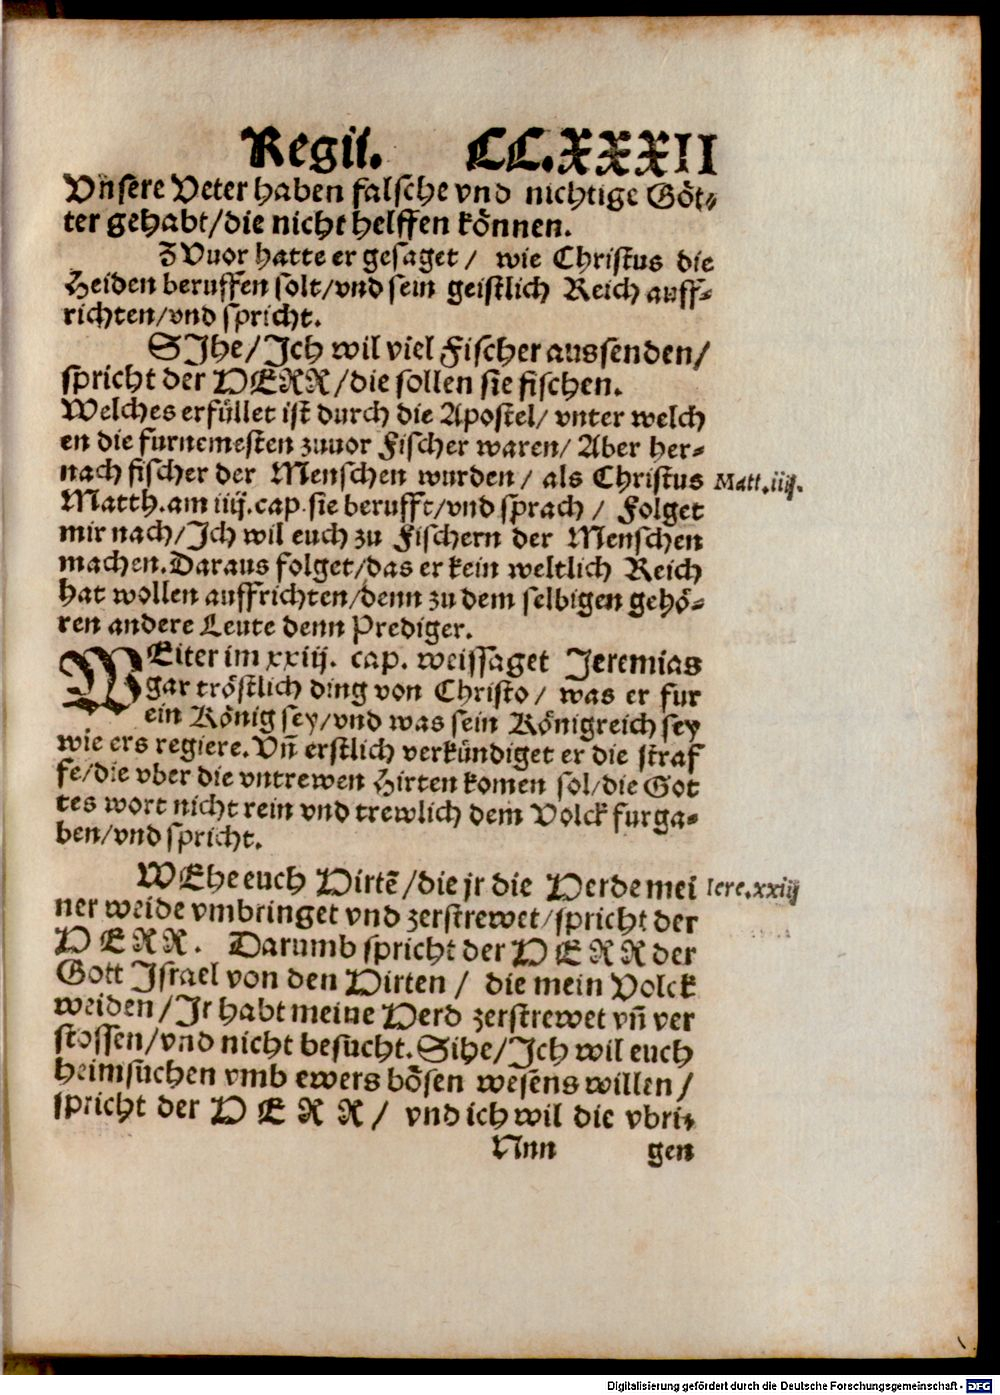 Regii. CC.XXXII
Vnsere Veter haben falsche vnd nichtige Göt-
ter gehabt/die nicht helffen können.
ZVuor hatte er gesaget / wie Christus die
Heiden beruffen solt/vnd sein geistlich Reich auff-
richten/vnd spricht.
SIhe/Ich wil viel Fischer aussenden/
spricht der HERR/die sollen sie fischen.
Welches erfüllet ist durch die Apostel/ vnter welch
en die furnemesten zuuor Fischer waren/ Aber her-
nach fischer der Menschen wurden / als Christus
Matth.am iiij.cap.sie berufft/vnd sprach / Folget
mir nach/Ich wil euch zu Fischern der Menschen
machen.Daraus folget/das er kein weltlich Reich
hat wollen auffrichten/denn zu dem selbigen gehö-
ren andere Leute denn Prediger.
Matt.iiij.
WEiter im xxiij. cap. weissaget Jeremias
gar tröstlich ding von Christo / was er fur
ein König sey/vnd was sein Königreich sey
wie ers regiere.Vñ erstlich verkündiget er die straf
fe/die vber die vntrewen Hirten komen sol/die Got
tes wort nicht rein vnd trewlich dem Volck furga-
ben/vnd spricht.
WEhe euch Hirtẽ/die jr die Herde mei
ner weide vmbringet vnd zerstrewet/spricht der
HERR. Darumb spricht der HERR der
Gott Israel von den Hirten / die mein Volck
weiden/Ir habt meine Herd zerstrewet vñ ver
stossen/vnd nicht besucht.Sihe/Ich wil euch
heimsuchen vmb ewers bösen wesens willen/
spricht der HERR/ vnd ich wil die vbri-
Iere.xxiij
Nnn gen
Digitalisierung gefördert durch die Deutsche Forschungsgemeinschaft - DFG